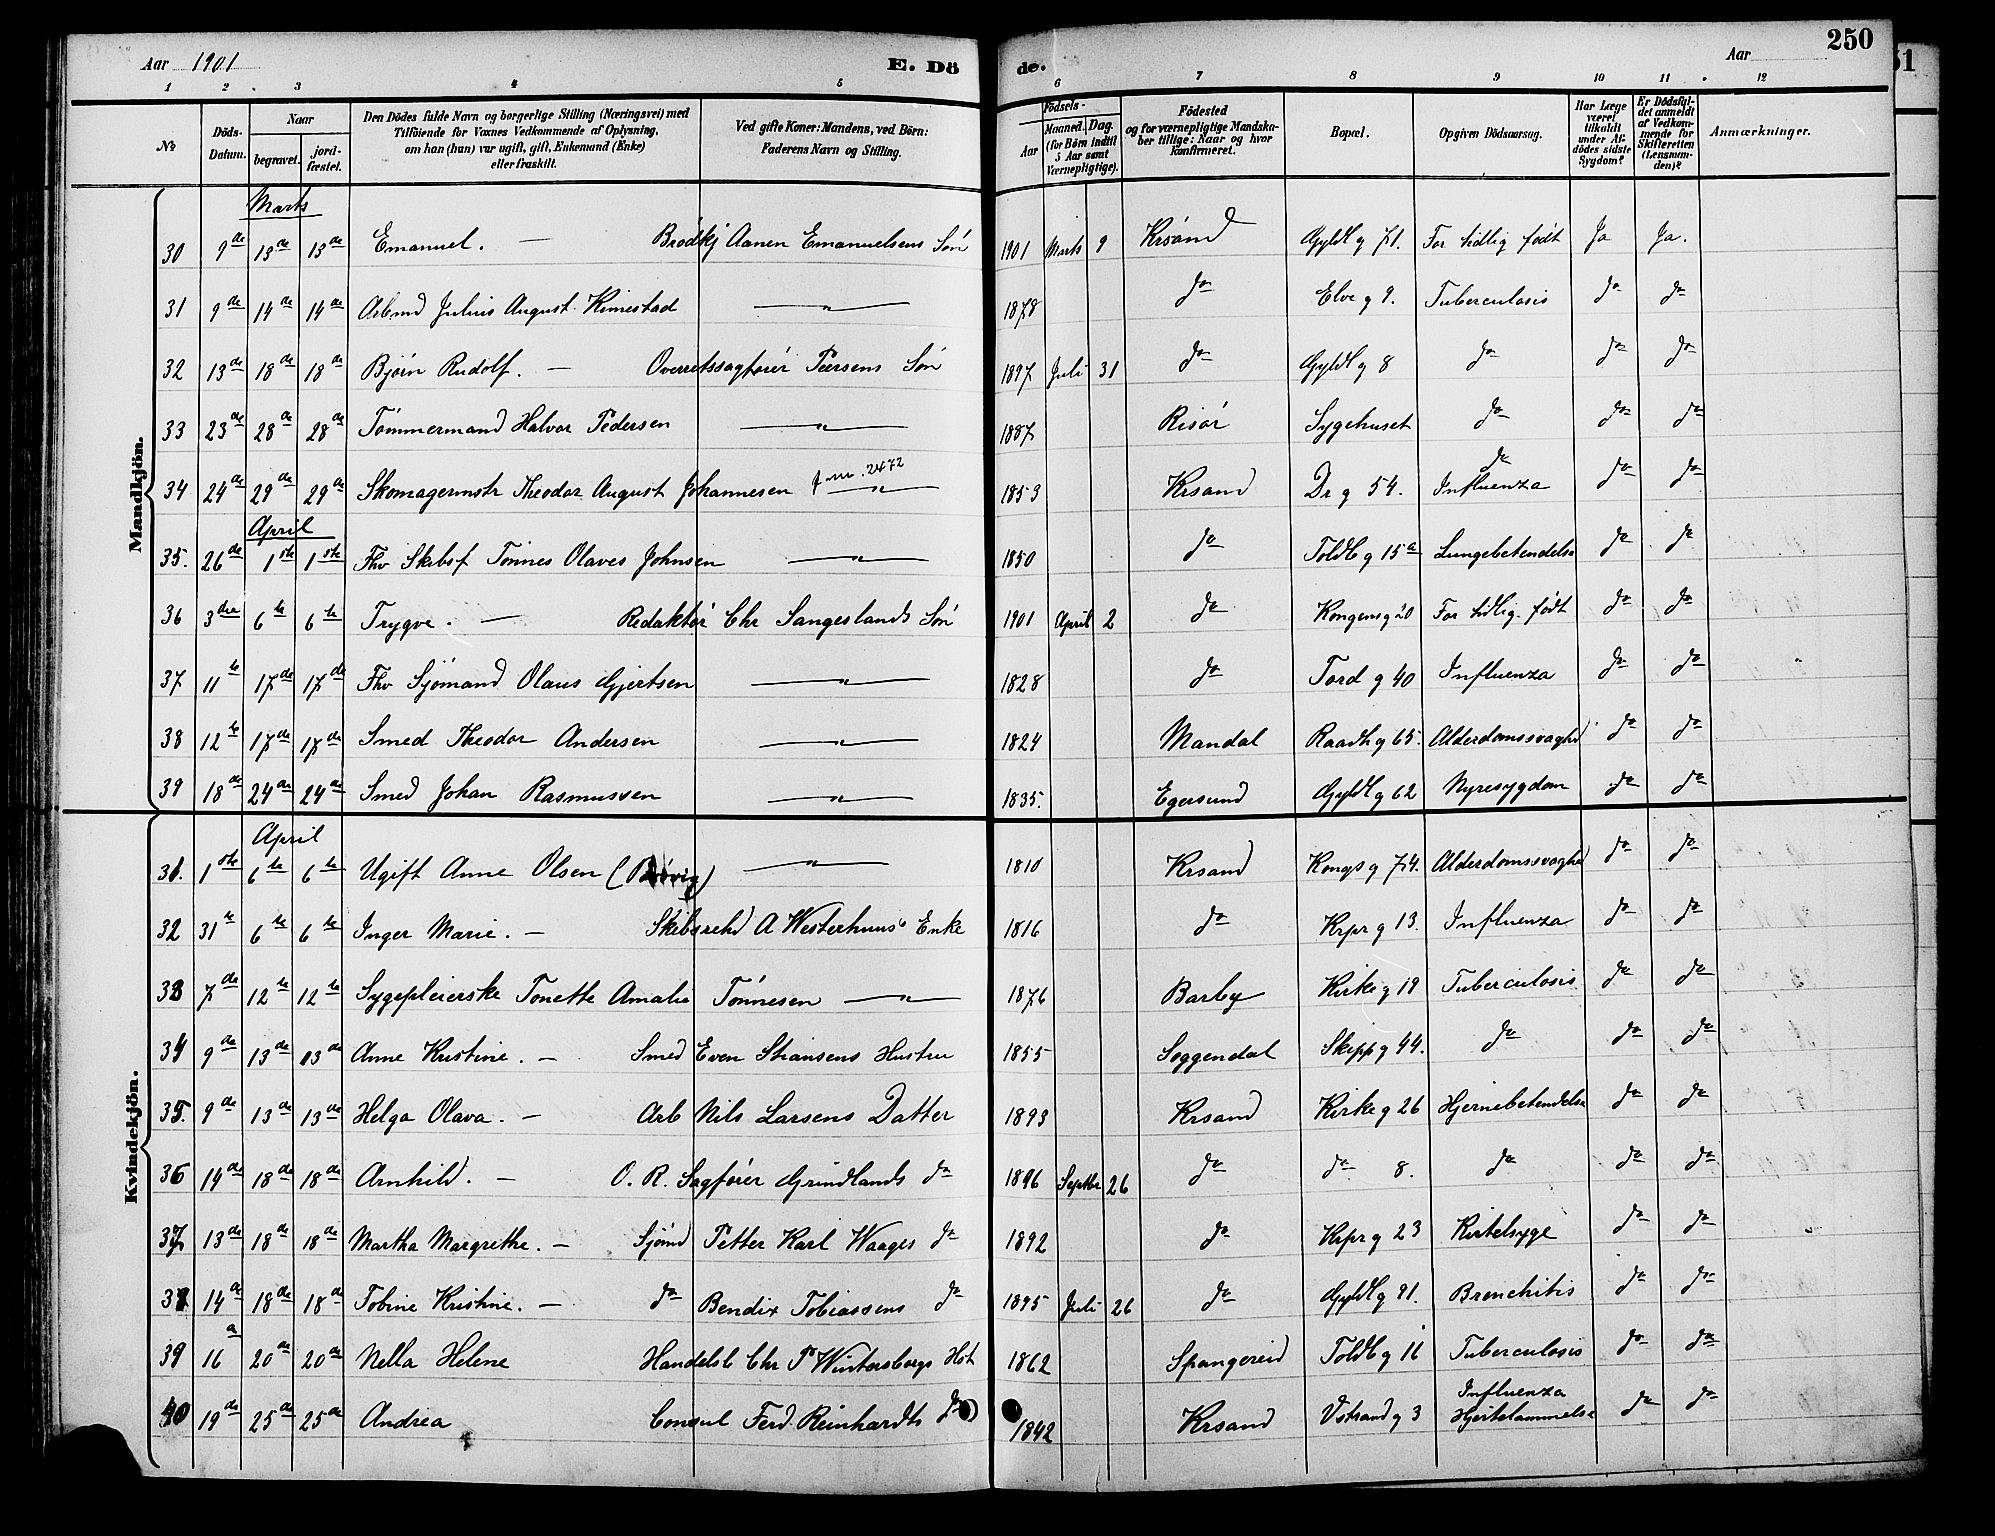 250
Aar 1901 E. Dö de. Aar
1 2 3 4 5 6 7 8 9 10 11 12
№ Döds-Datum. Naar begravet. jord-fæstet. Den Dödes fulde Navn og borgerlige Stilling (Næringsvei) med Tilföiende for Voxnes Vedkommende af Oplysning, om han (hun) var ugift, gift, Enkemand (Enke) eller fraskilt. Ved gifte Koner: Mandens, ved Börn: Faderens Navn og Stilling. Födsels- Aar Maaned. Dag. (for Börn indtil 5 Aar samt Værnepligtige). Födested og for værnepligtige Mandskaber tillige: Naar og hvor konfirmeret. Bopæl. Opgiven Dödsaarsag. Har Læge været tilkaldt under Afdödes sidste Sygdom? Er Dödsfaldet anmeldt af Vedkommende for Skifteretten (Lensmanden)? Anmærkninger.
Mandkjön.
Marts
30 9de 13de 13de Emanuel. — Brödkj Aanen Emanuelsens Sön 1901 Marts 9 Krsand Gyldl g 71. For tidlig født Ja Ja.
31 9de 14de 14de Arbmd Julius August Kimestad —"— 1878 do Elve g 9. Tuberculosis do do
32 13de 18de 18de Bjórn Rudolf. — Overretssagfórer Peersens Sön 1897 Juli 31 do Gyldl g 8 do do do
33 23de 28de 28de Tömmermand Halvor Pedersen —"— 1887 Risór Sygehuset do do do
34 24de 29de 29de Skomagermstr Theodor August Johannesen f m. 2472 —"— 1853 Krsand Dr g 54. do Influenza do do
April
35. 26de 1ste 1ste Fhv Skibsf Tönnes Olaves Johnsen —"— 1850 do Toldb g 15a Lungebetendelse do do
36 3die 6te 6te Trygve. — Redaktör Chr Sangeslands Sön 1901 April 2 do Kongens g 20 For tidlig født do do
37 11te 17de 17de Fhv Sjömand Olaus Gjertsen —"— 1828 do Tord g 40 Influenza do do
38 12te 17de 17de Smed Theodor Andersen —"— 1824 Mandal Raadh g 65. Alderdomssvaghd do do
39 18de 24de 24de Smed Johan Rasmussen —"— 1835. Egersund Gyldl g 62 Nyresygdom do do
Kvindekjön.
April
31. 1ste 6te 6te Ugift Anne Olsen —"— 1810 Krsand Kongs g 74. Alderdomssvaghed do do
32 31te 6te 6te Inger Marie. — Skibsrehd A Westerhuus' Enke 1816 do Krpr g 13. Influenza do do
33 7de 12te 12te Sygepleierske Tonette Amalie Tönnesen —"— 1876 Barby Kirke g 19 Tuberculosis do do
34 9de 13de 13de Anne Kristine. — Smed Even Stiansens Hustru 1855 Soggendal Skipp g 44. do do do
35. 9de 13de 13de Helga Olava. — Arb Nils Larsens Datter 1893 Krsand Kirke g 26 Hjernebetendelse do do
36 14de 18de 18de Arnhild. — O. R. Sagförer Grindlands do 1896 Septbr 26 do do 8. do do do
37 13de 18de 18de Martha Margrethe. — Sjömd Petter Karl Waages do 1892 do Krpr g 23 Kirtelsyge do do
38 14de 18de 18de Tobine Kristine. — do Bendix Tobiassens do 1895 Juli 26 do Gyldl g 91. Bronchitis do do
39 16de 20de 20de Nella Helene Handelsb Chr P Wintersborgs Hst 1862 Spangereid Toldb g 16 Tuberculosis do do
40 19de 25de 25de Andrea Consul Ferd. Reinhardts do 1842 Krsand Vstrand g 3 Influenza Hjertelammelse do do